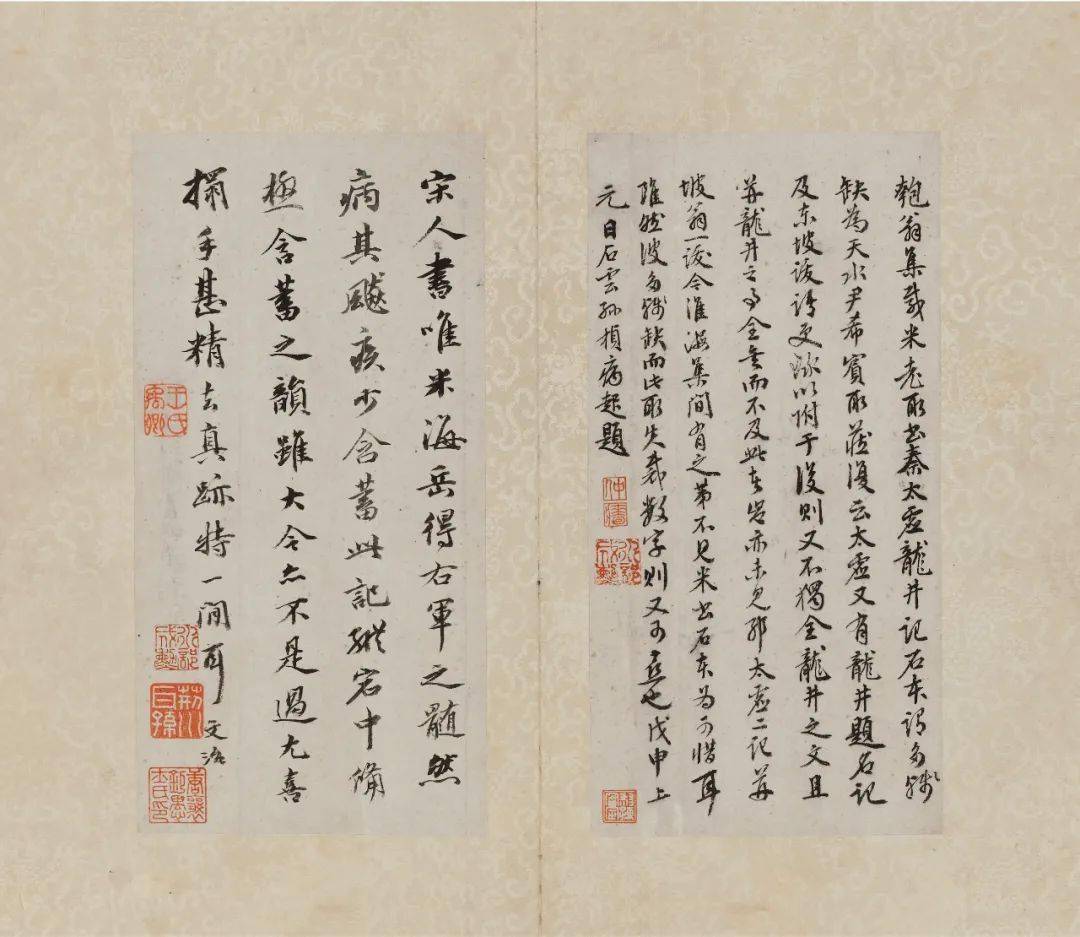 匏翁集載米老所書秦太虛龍井記石本謂多殘
缺為天水尹希賓所藏復云太虛又有龍井題名記
及東坡跋請更録以附于後則又不獨全龍井之文且
并龍井之事全矣而不及此本豈亦未見耶太虛二記并
坡翁一跋今淮海集間有之第不見米書石本為可惜耳
雖然彼多殘缺而此所失裁數字則又可喜也戊申上
元日石雲孫楨病起題
宋人書唯米海岳得右軍之髓然
病其飈疾少含蓄此記縱宕中備
極含蓄之韻雖大令亦不是過尤喜
搨手甚精去真跡特一間耳文治
王氏禹卿
荊川